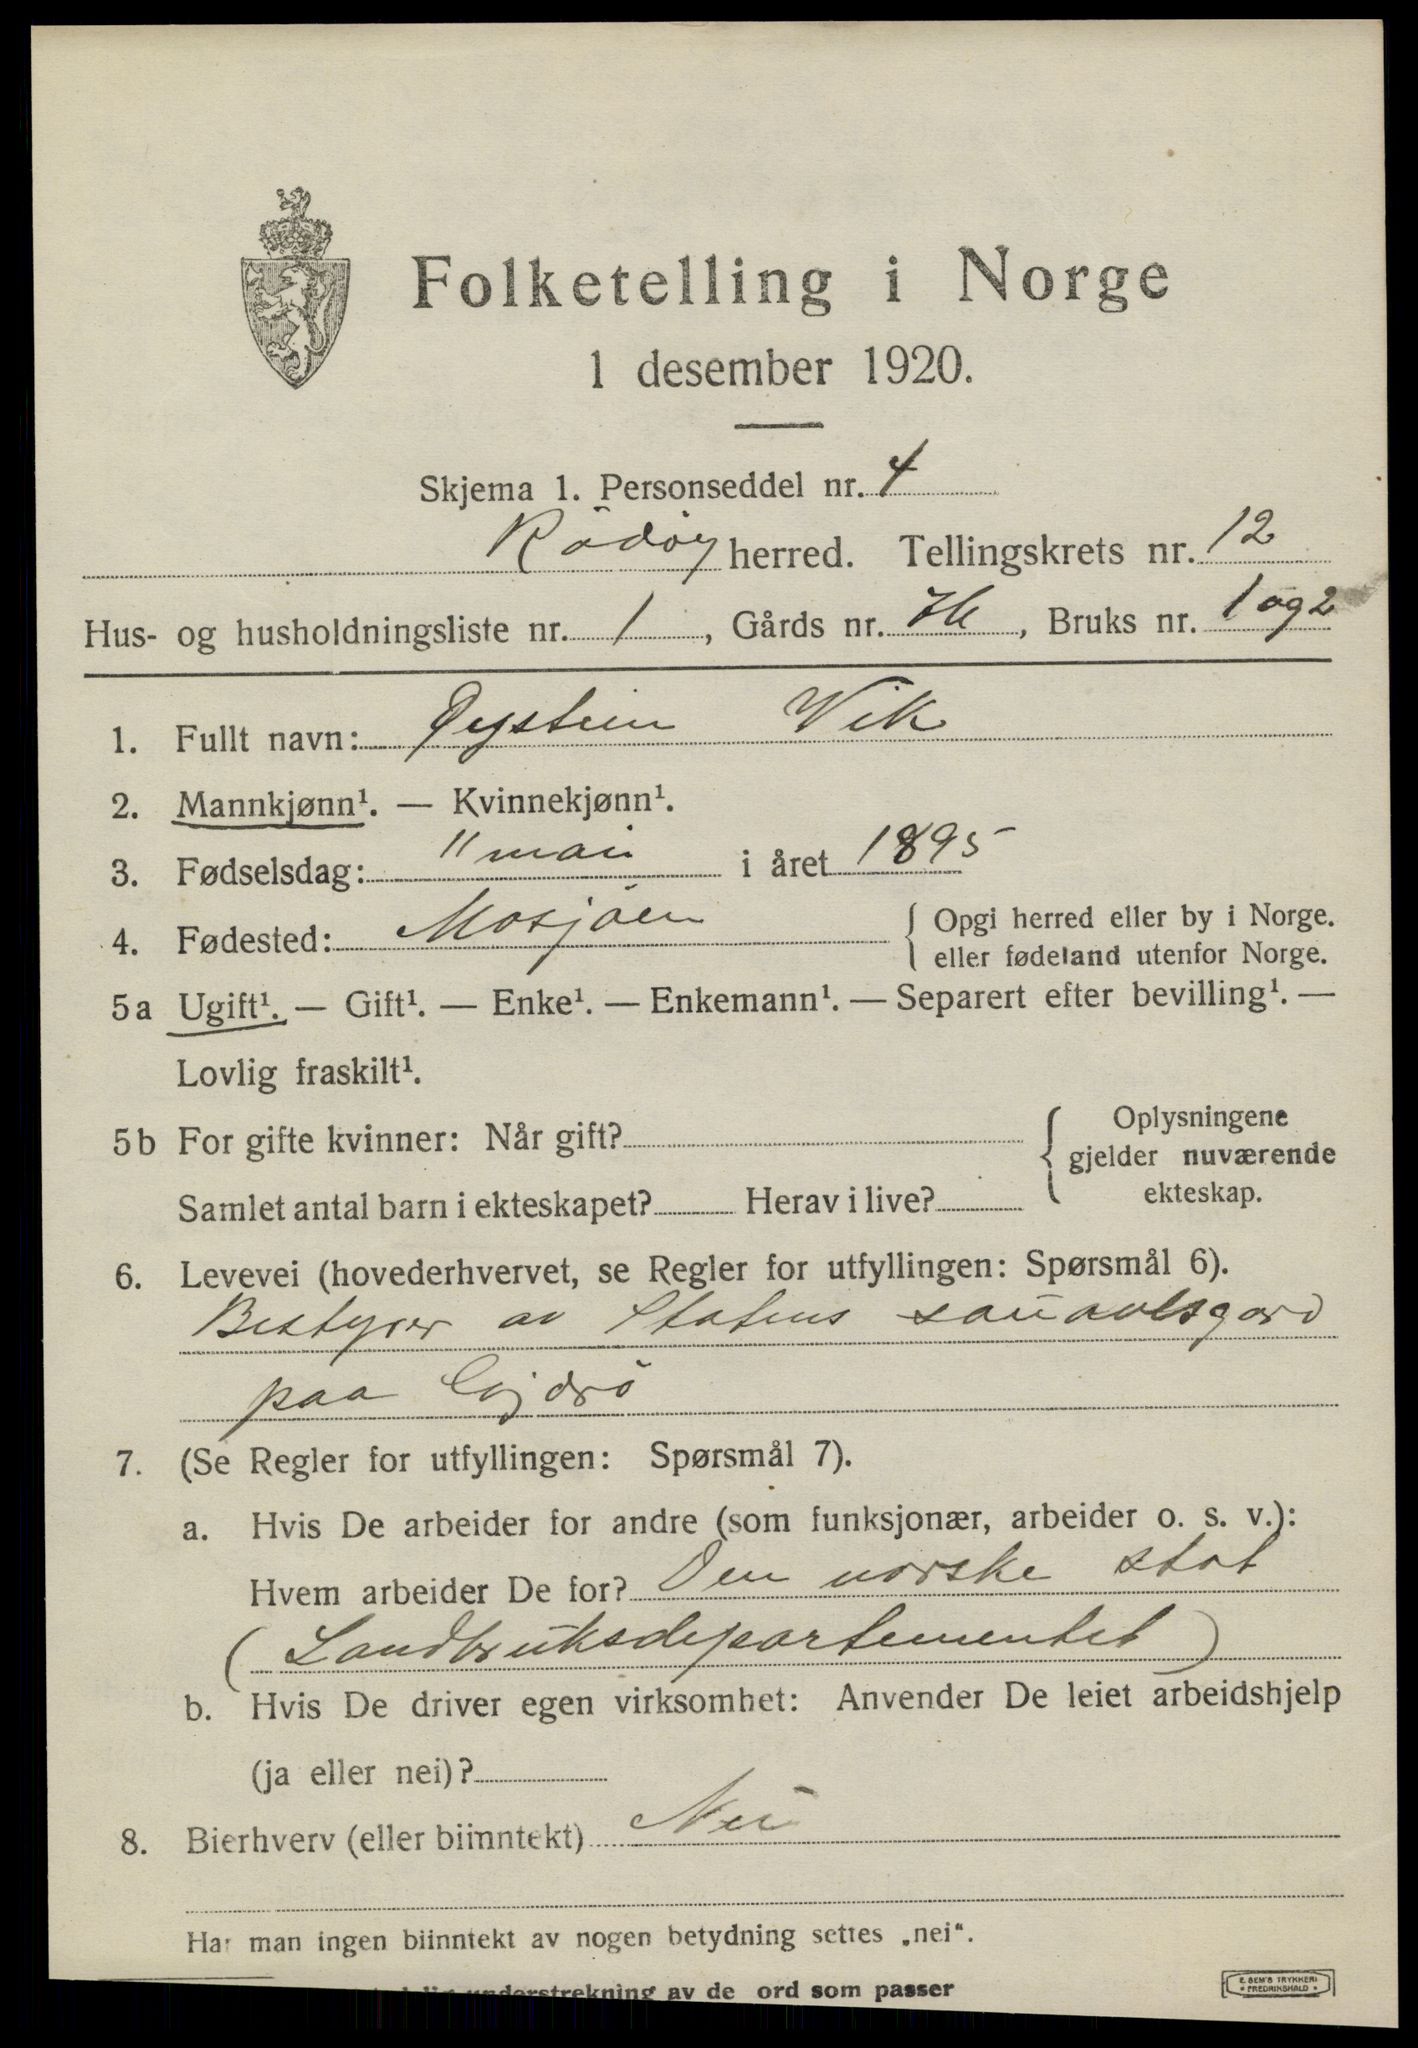 Folketelling i Norge
1 desember 1920.
Skjema 1. Personseddel nr. 4
Rödöy herred. Tellingskrets nr. 12
Hus- og husholdningsliste nr. 1, Gårds nr. , Bruks nr. 1 og 2
1. Fullt navn: Øystein Vik
2. Mannkjønn¹. — Kvinnekjønn¹.
3. Fødselsdag: 11 mai i året 1895
4. Fødested: Mosjöen { Opgi herred eller by i Norge.
eller fødeland utenfor Norge.
5a Ugift¹. — Gift¹. — Enke¹. — Enkemann¹. — Separert efter bevilling¹. —
Lovlig fraskilt¹.
5b For gifte kvinner: Når gift? { Oplysningene
gjelder nuværende
ekteskap.
Samlet antal barn i ekteskapet? Herav i live?
6. Levevei (hovederhvervet, se Regler for utfyllingen: Spørsmål 6).
Bestyrer av Statens sauavlsgård
paa
7. (Se Regler for utfyllingen: Spørsmål 7).
a. Hvis De arbeider for andre (som funksjonær, arbeider o. s. v.):
Hvem arbeider De for? Den norske stat
(Landbruksdepartementet)
b. Hvis De driver egen virksomhet: Anvender De leiet arbeidshjelp
(ja eller nei)?
8. Bierhverv (eller biinntekt) Nei
Har man ingen biinntekt av nogen betydning settes „nei“.
understrekning av de ord som passer
E. SEM'S TRYKKERI
* FREDRIKSHALD *